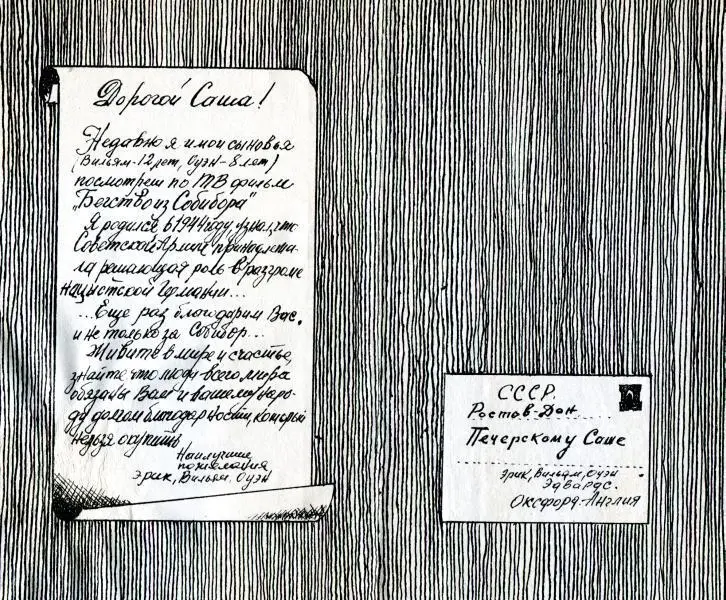 Дорогой Саша!
Недавно я и мои сыновья
(Вильям-12 лет, Оуэн-8 лет)
посмотрели по ТВ фильм
"Бегство из Собибора"
Я родился в 1944 году и знал, что
Советской Армии принадлежа-
ла решающая роль в разгроме
нацистской Германии...
...Еще раз благодарим Вас.
и не только за Собибор...
Живите в мире и счастье,
знайте что люди всего мира
обязаны Вам и вашему наро-
ду долгом благодарности, который
нельзя окупить
Наилучшие
пожелания
Эрик, Вильям, Оуэн
СССР.
Ростов-Дон
Печерскому Саше
Эрик, Вильям, Оуэн
Эдвардс.
Оксфорд-Англия